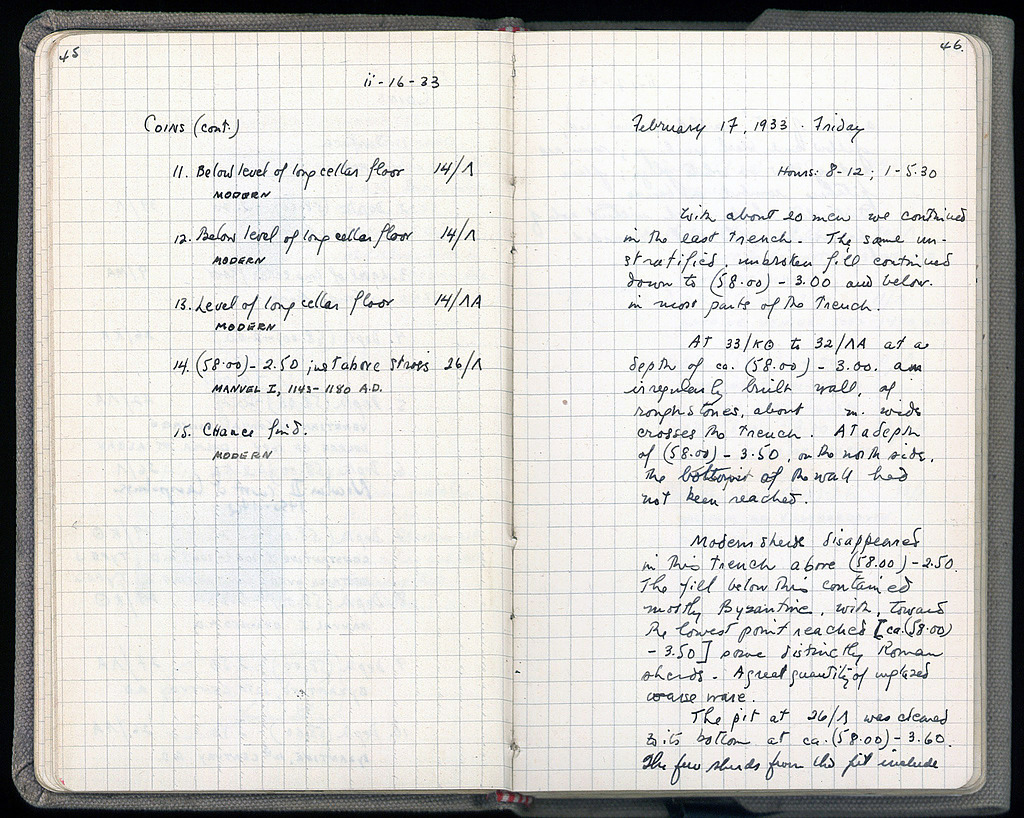 45
ii-16-33
COINS (cont.)
11. Below level of long cellar floor 14/Λ
MODERN
12. Below level of long cellar floor 14/Λ
MODERN
13. Level of long cellar floor 14/ΛΑ
MODERN
14. (58.00) - 2.50 just above strosis 26/Λ
MANUEL I, 1143-1180 A.D.
15. Chance find.
MODERN
46.
February 17, 1933. Friday
Hours: 8-12; 1-5.30
With about 20 men we continued
in the east trench. The same un-
stratified, unbroken fill continued
down to (58.00) - 3.00 and below
in most parts of the trench.
At 33/ΚΘ to 32/ΛΑ at a
depth of ca. (58.00) - 3.00. an
irregularly built wall, of
rough stones, about m. wide
crosses the trench. At a depth
of (58.00) - 3.50, on the north side,
the bottom of the wall had
not been reached.
Modern sherds disappeared
in this trench above (58.00) - 2.50.
The fill below this contained
mostly Byzantine, with, toward
the lowest point reached [ca. (58.00)
- 3.50] some distinctly Roman
sherds. A great quantity of unglazed
coarse ware.
The pit at 26/Λ was cleared
to its bottom at ca. (58.00) - 3.60.
The few sherds from the pit include